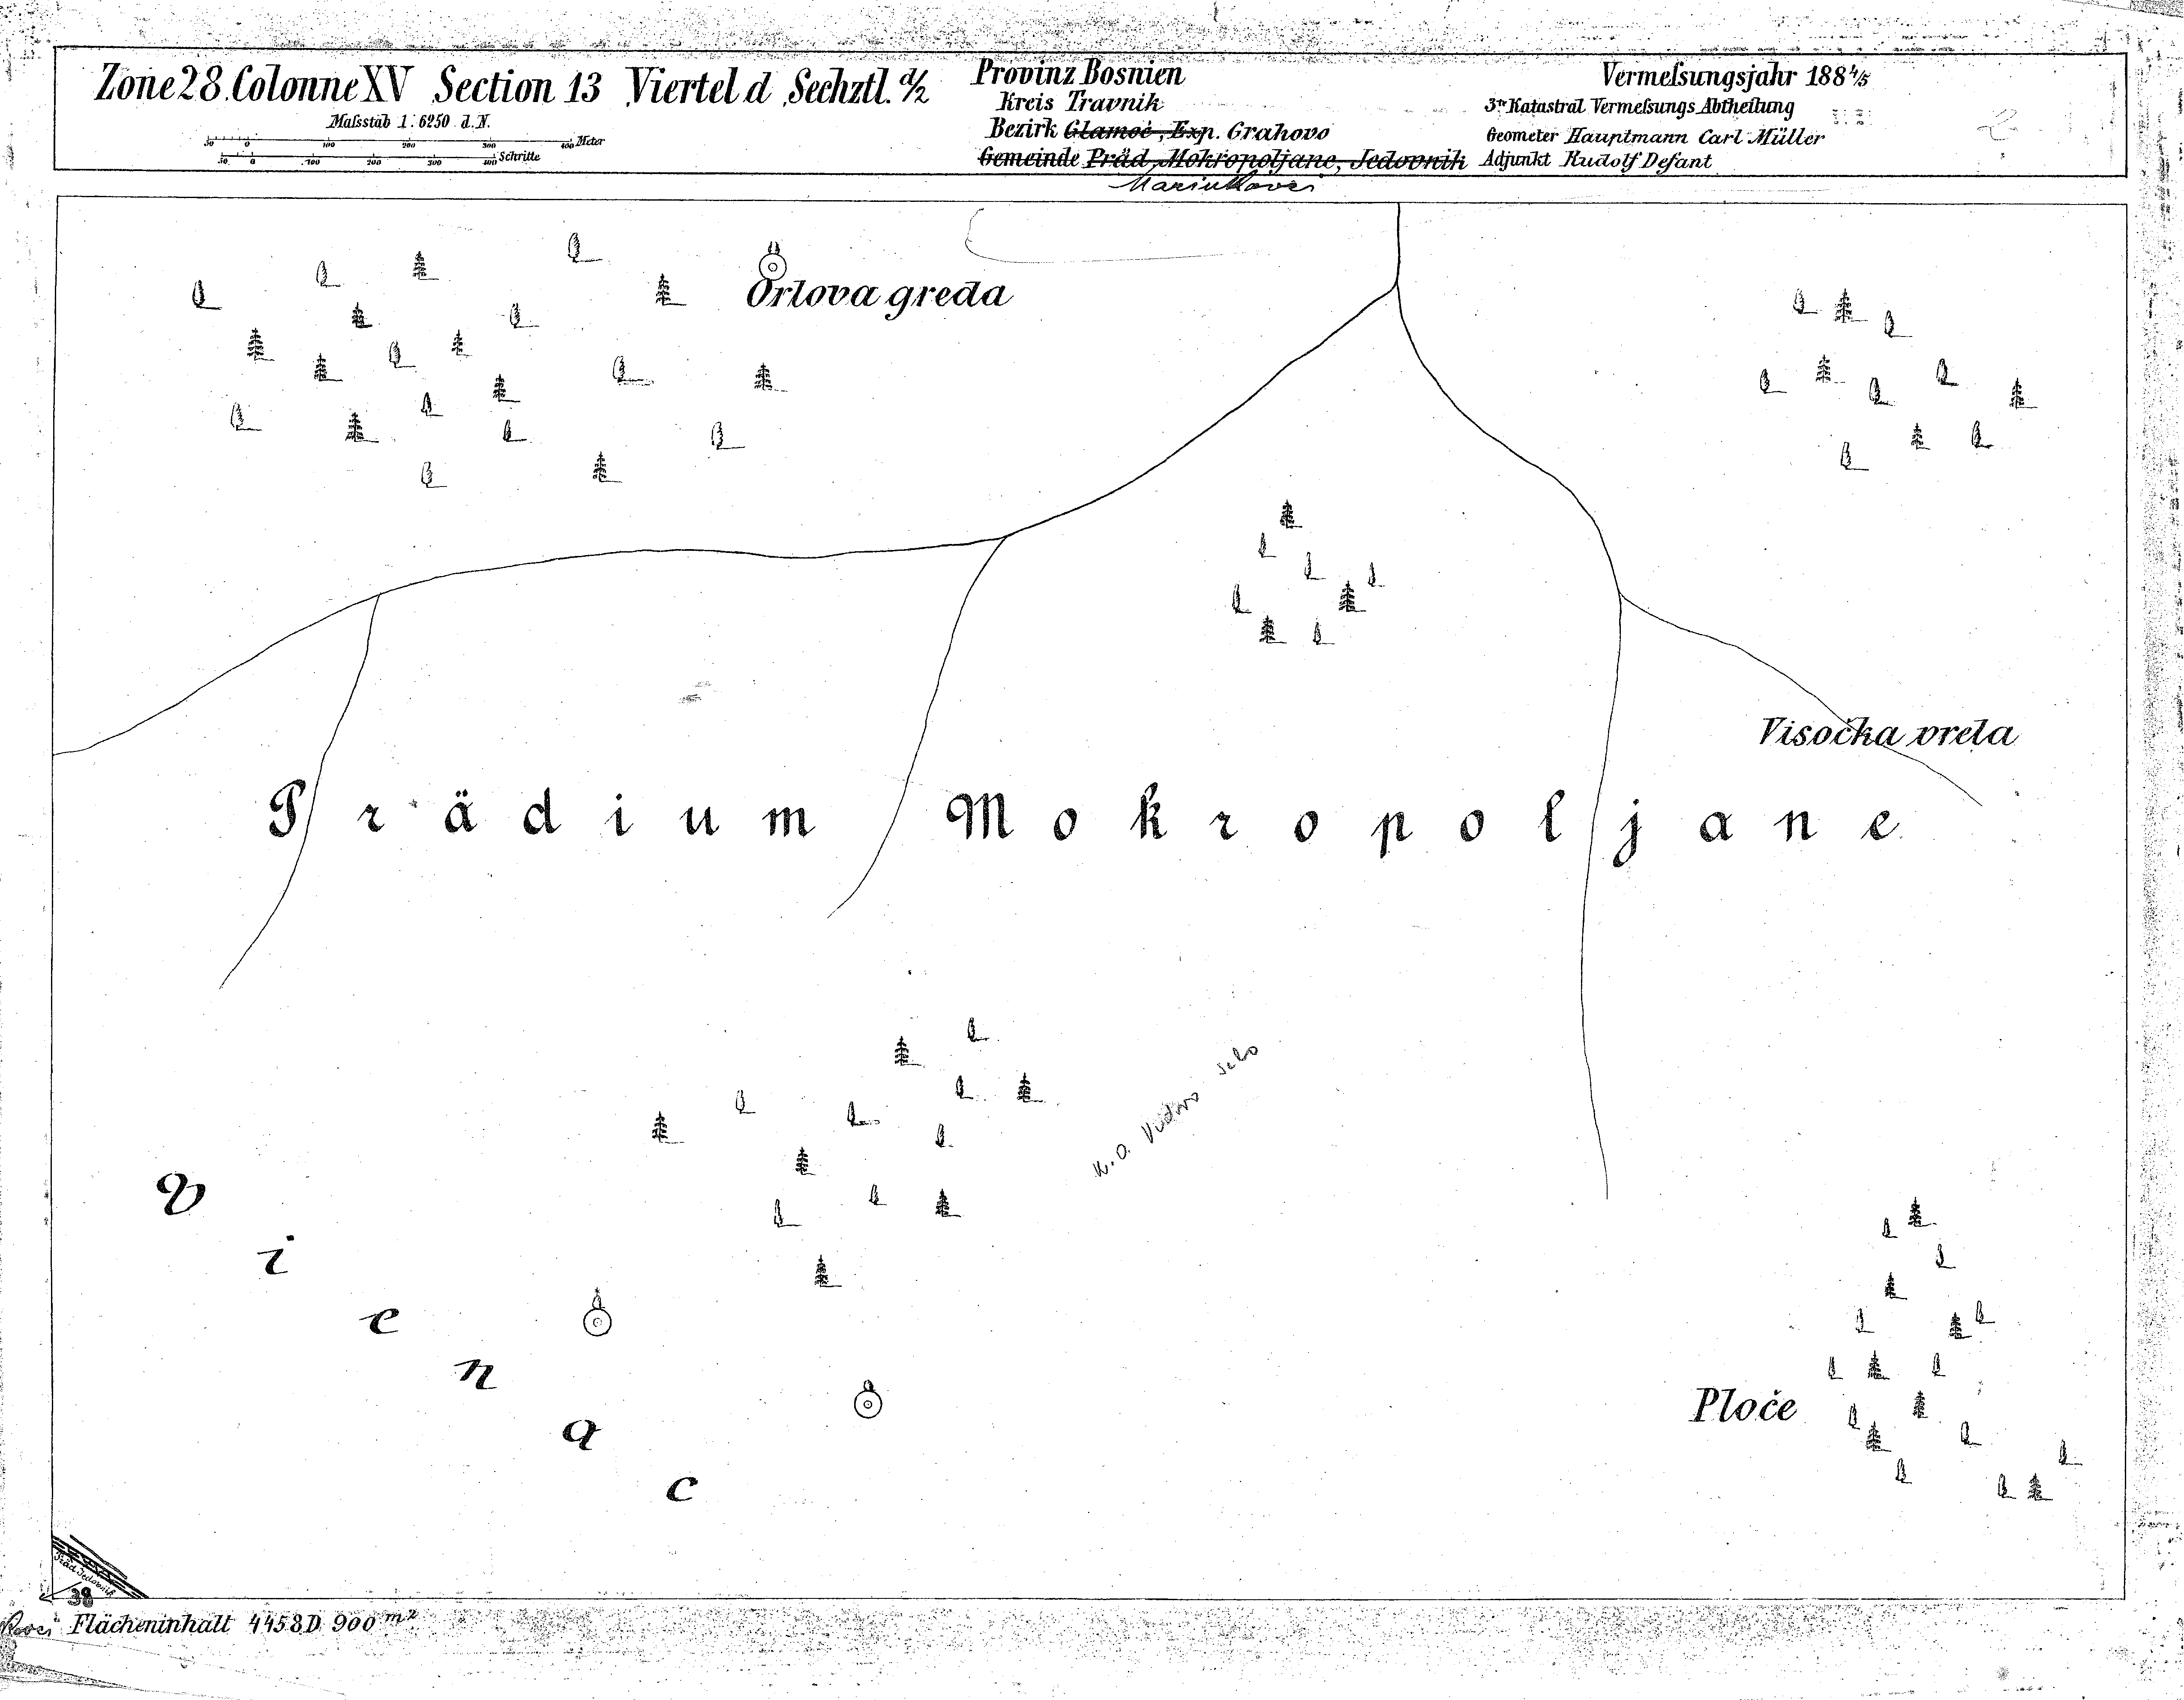 Zone 28. Colonne XV Section 13 Viertel d Sechztl. d/2
Maſsstab 1:6250 d. N.
50 0 100 200 300 400 Meter
50 0 100 200 300 400 Schritte
Provinz Bosnien
Kreis Travnik
Bezirk Glamoč, Exp. Grahovo
Gemeinde Präd. Mokropoljane, Jedovnik
Vermeſsungsjahr 188 4/5
3te Katastral Vermeſsungs Abtheilung
Geometer Hauptmann Carl Müller
Adjunkt Rudolf Defant
Orlova greda
Visočka vrela
Prädium Mokropoljane
K.O. Vidovo selo
Vienac
Ploče
Präd. Jedovnik
38
Flächeninhalt 4458 D 900 m²